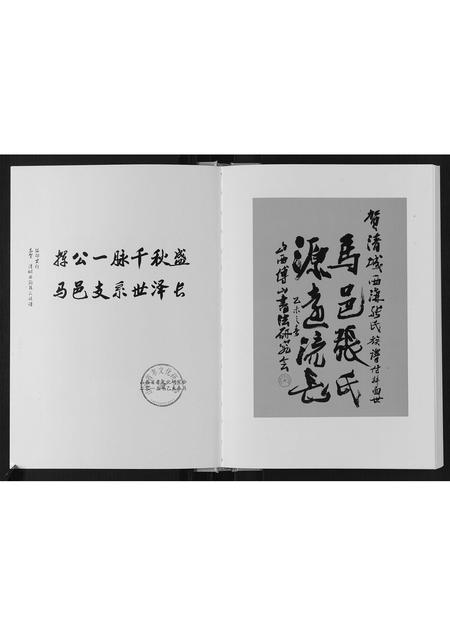 挥公一脉千秋盛
马邑支系世泽长
贺清城西梁张氏族谱付梓面世
馬邑張氏
源遠流長
乙未之春
山西傅山書法研究会